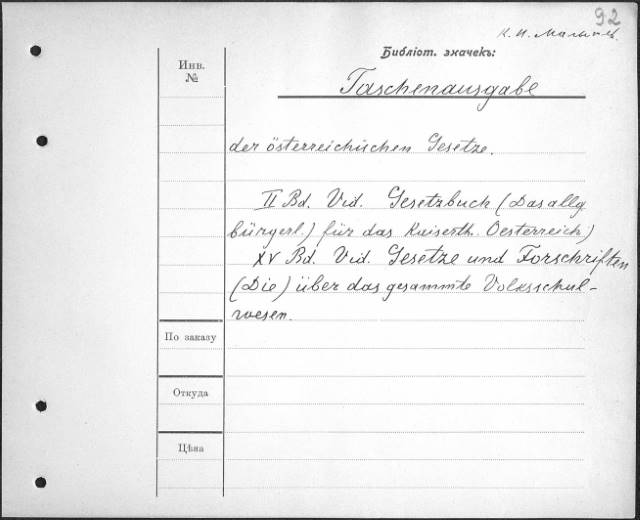 92
К. И.
Библіот. значекъ:
Инв.
№
Taschenausgabe
der österreichischen Gesetze.
II Bd. Vid. Gesetzbuch (Das allg.
bürgerl.) für das Kaiserth. Oesterreich)
XV Bd. Vid. Gesetze und Forschriften
(Die) über das gesammte Volksschul-
wesen.
По заказу
Откуда
Цѣна